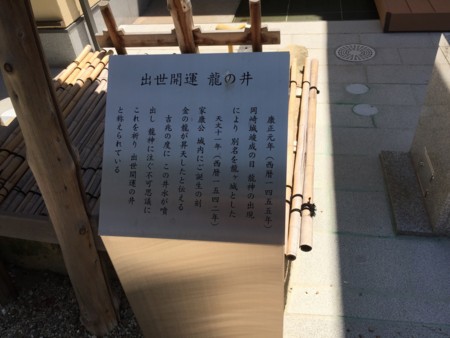 出世開運 龍の井
康正元年(西暦一四五五年)
岡崎城達成の日 龍神の出現
により 別名を龍ヶ城とした
天文十一年(西暦一五四二年)
家康公 城内にご誕生の刻
金の龍が昇天したと伝える
吉兆の度に この井水が噴
出し 龍神に注ぐ不可思議に
これを祈り 出世開運の井
と称えられている